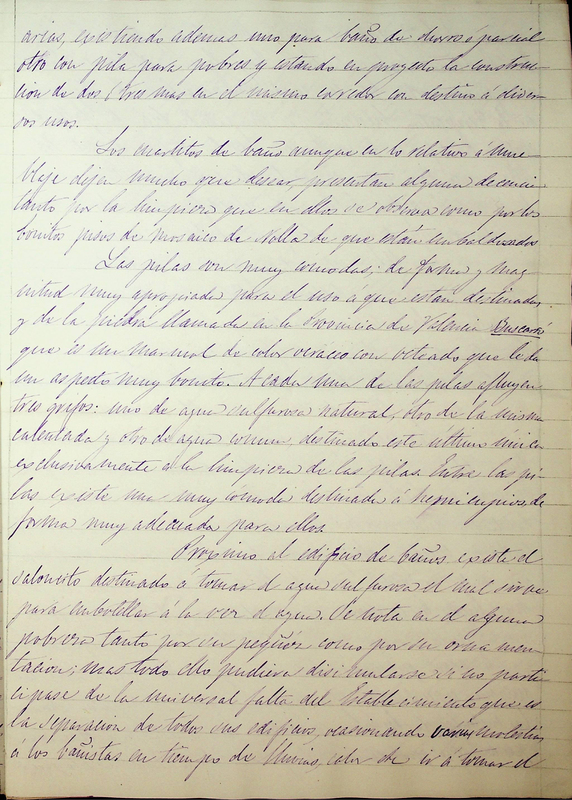 arias, existiendo ademas uno para baño de chorros ó parcial
otro con pila para pobres y estando en proyecto la construc-
cion de dos ó tres mas en el mismo corredor con destino á diver-
sos usos.
Los cuartitos de baño aunque en lo relativo á mue-
blaje dejan mucho que desear, presentan alguna decencia
tanto por la limpieza que en ellos se observa como por los
bonitos pisos de mosaico de Nolla de que están embaldosados
Las pilas son muy comodas; de forma y mag-
nitud muy apropiada para el uso á que estan destinadas
y de la piedra llamada en la Provincia de Valencia Buscarró
que es un marmol de color vináceo con veteado que le da
un aspecto muy bonito. A cada una de las pilas afluyen
tres grifos: uno de agua sulfurosa natural, otro de la misma
calentada y otro de agua comun destinado este ultimo unica
exclusivamente á la limpieza de las pilas. Entre las pi-
las existe una muy cómoda destinada á hemicuspios de
forma muy adecuada para ellos.
Proximo al edificio de baños existe el
saloncito destinado á tomar el agua sulfurosa el cual sirve
para embotellar á la vez el agua. Se nota en el alguna
pobreza tanto por su pequeñez como por su ornamen-
tacion; mas todo ello pudiera disimularse si no parti-
cipase de la universal falta del Establecimiento que es
la separacion de todos sus edificios, ocasionando varias molestias
a los bañistas en tiempo de lluvias, calor de ir á tomar el